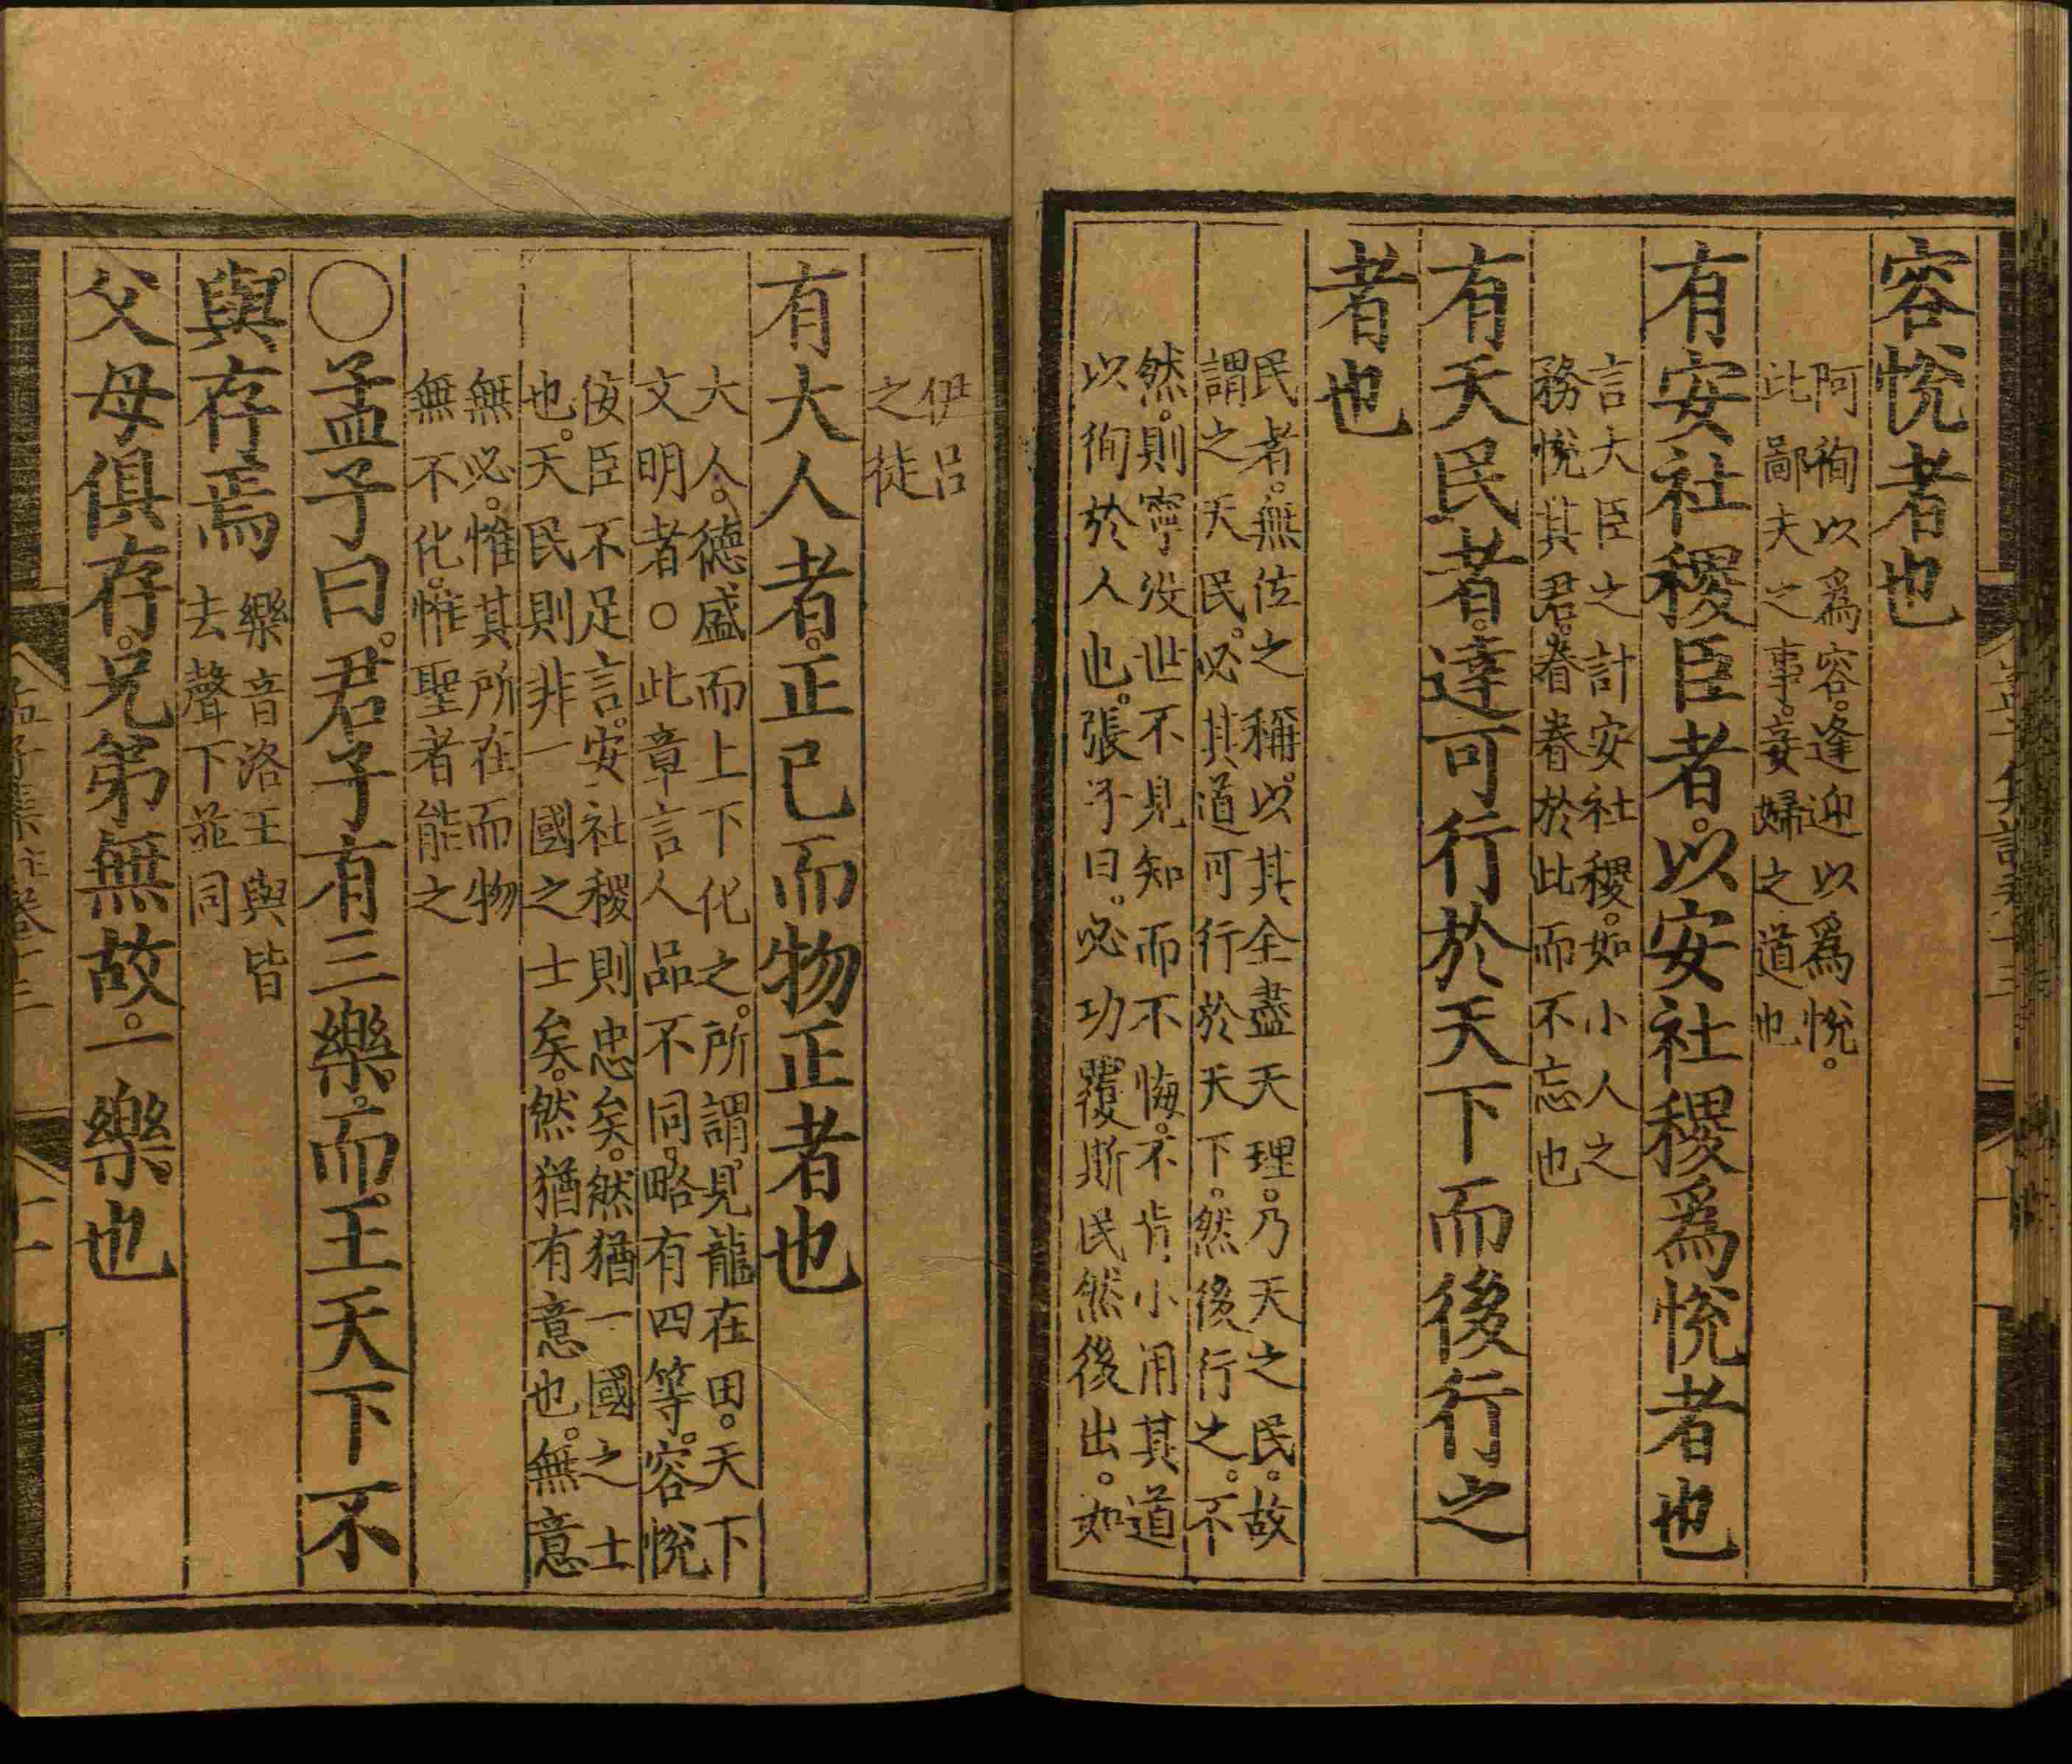 容悅者也
阿徇以爲容。逢迎以爲悅。
此鄙夫之事。妾婦之道也
有安社稷臣者。以安社稷爲悅者也
言大臣之計安社稷。如小人之
務悅其君。眷眷於此而不忘也
有天民者。達可行於天下而後行之
者也
民者。無位之稱。以其全盡天理。乃天之民。故
謂之天民。必其道可行於天下。然後行之。不
然。則寧沒世不見知而不悔。不肯小用其道
以徇於人也。張子曰。必功覆斯民然後出。如
伊呂
之徒
有大人者。正己而物正者也
大人。德盛而上下化之。所謂見龍在田。天下
文明者。○此章言人品不同。略有四等。容悅
佞臣不足言。安社稷則忠矣。然猶一國之士
也。天民則非一國之士矣。然猶有意也。無意
無必。惟其所在而物
無不化。惟聖者能之
○孟子曰。君子有三樂。而王天下不
與存焉
樂音洛王與皆
去聲下並同
父母俱存。兄弟無故。一樂也